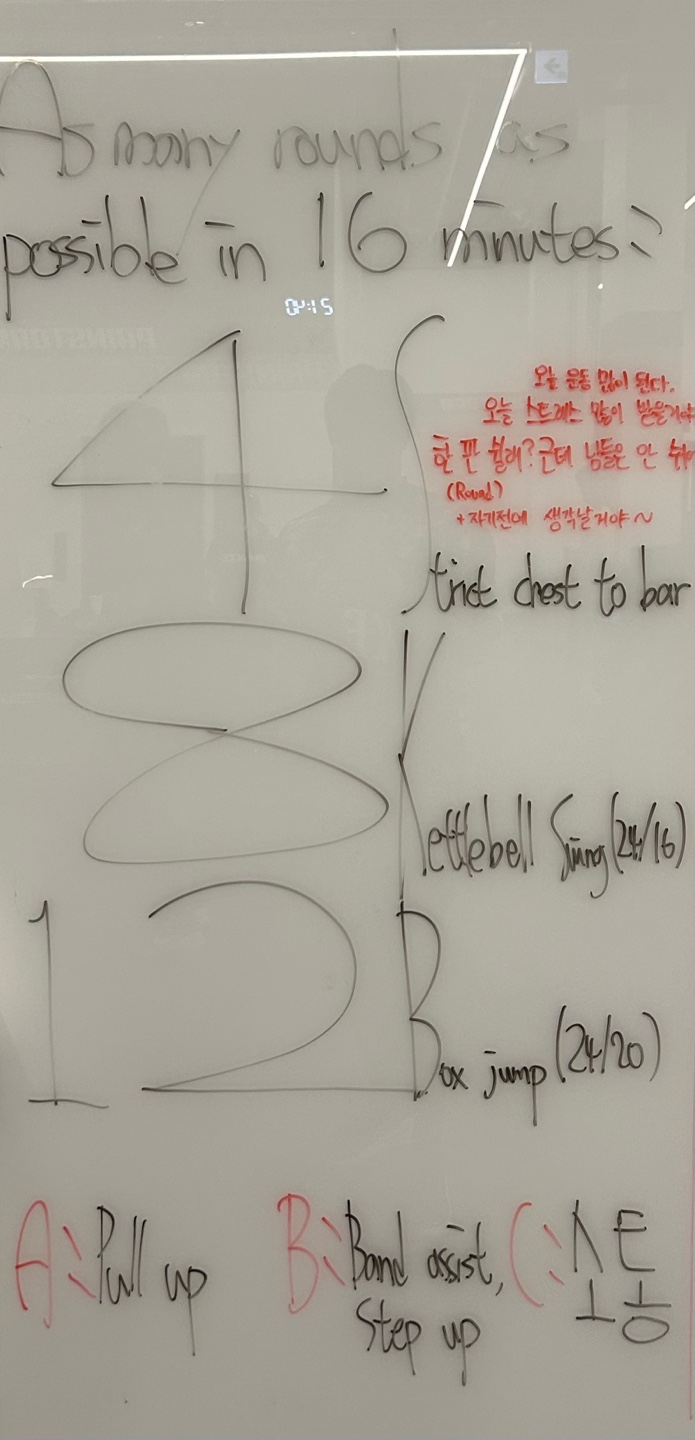 As many rounds as
possible in 16 minutes:
04:15
오늘 운동 많이 된다.
오늘 스트레스 많이 받을거야
한 판 쉴래? 근데 님들은 안 쉬어
(Round)
+ 자기전에 생각날거야~
4 Strict chest to bar
8 Kettlebell Swing (24/16)
12 Box jump (24/20)
A: Pull up
B: Band assist,
Step up
C: